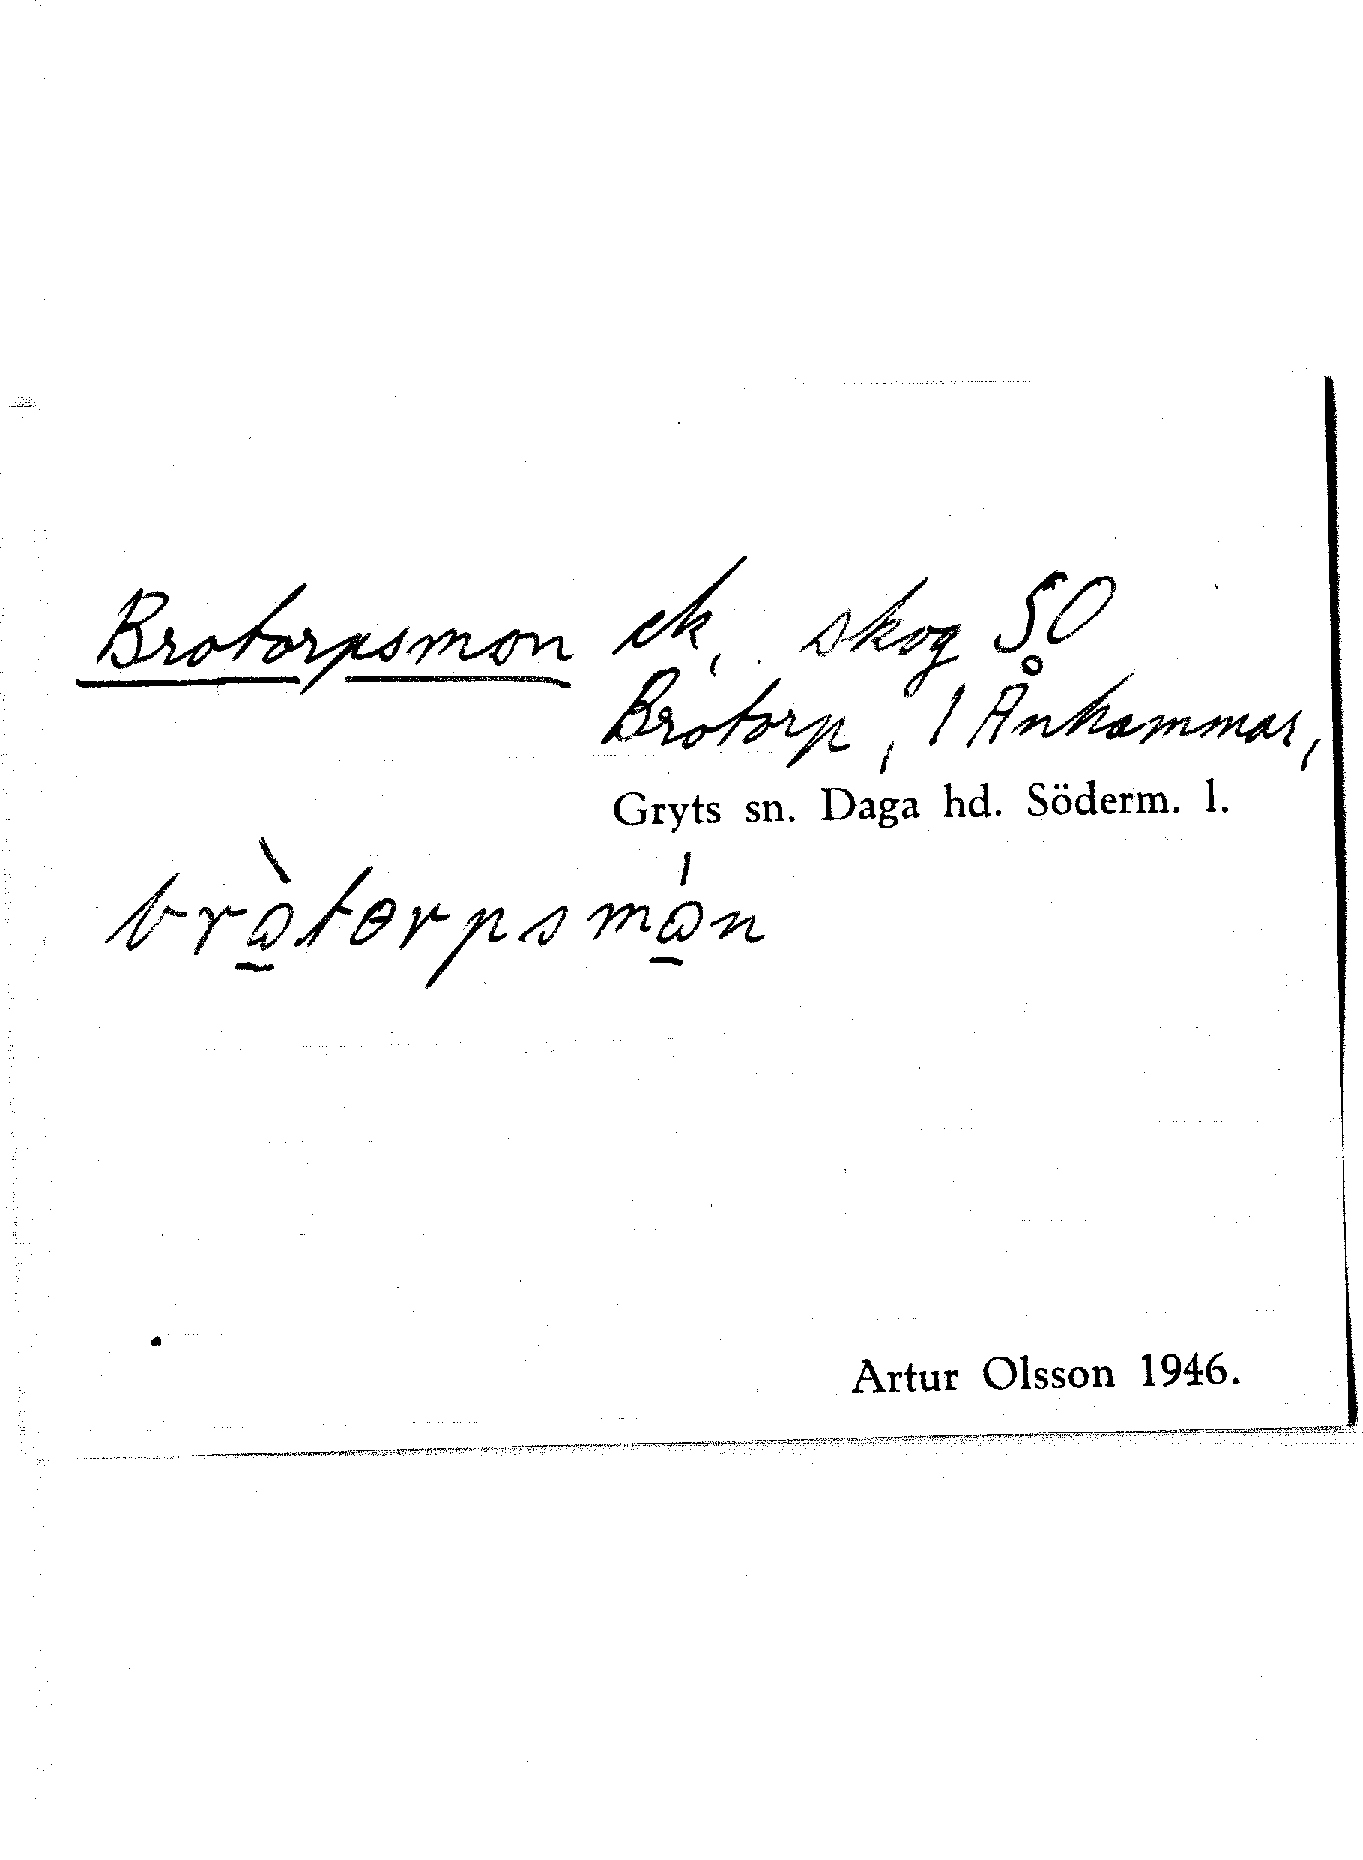 Brotorpsmon ek, skog SO
Brotorp, 1 Ånhammar,
Gryts sn. Daga hd. Söderm. l.
brὼ̲tɵrpsmώ̲n
Artur Olsson 1946.